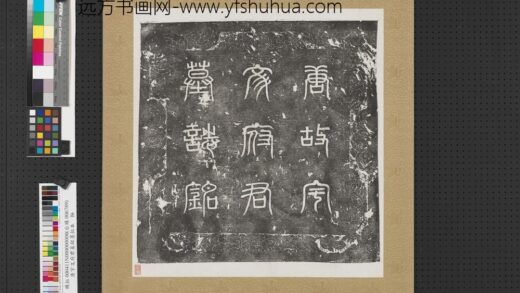 远方书画网-www.yfshuhua.com
唐故宇
文府君
墓誌銘